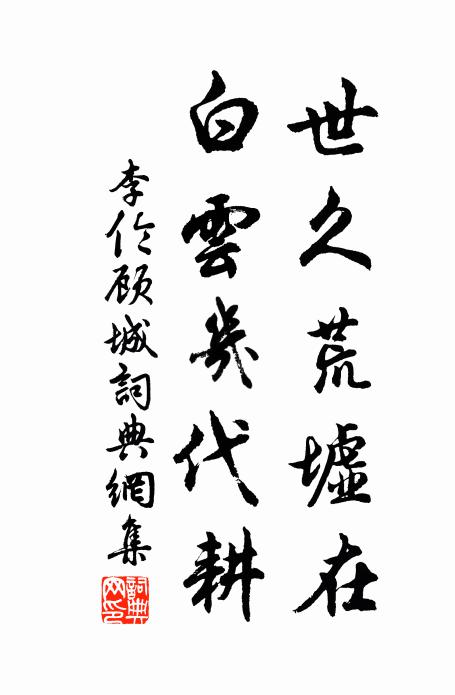 世久荒墟在
白雲幾代耕
李伶顾城詞典網集
詞典網印